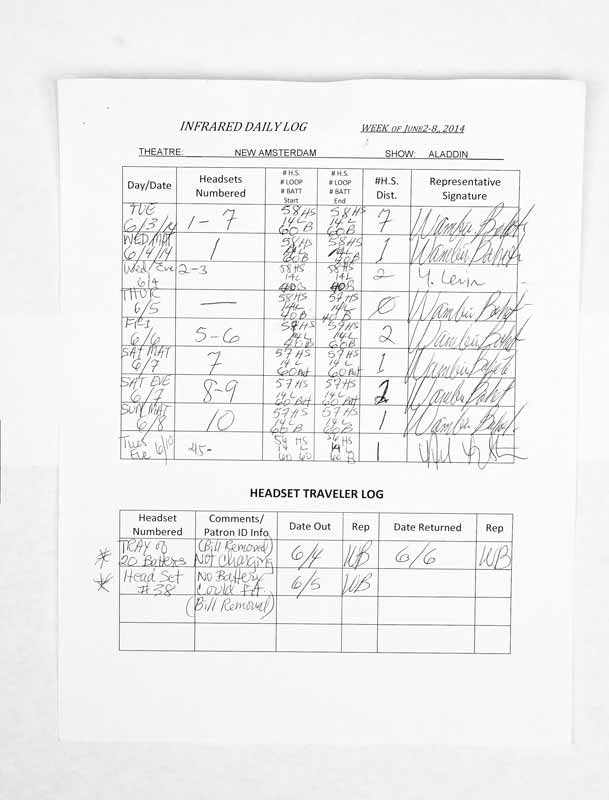 INFRARED DAILY LOG WEEK OF JUNE2-8, 2014
THEATRE: NEW AMSTERDAM SHOW: ALADDIN
Day/Date Headsets Numbered # H.S. # LOOP # BATT Start # H.S. # LOOP # BATT End #H.S. Dist. Representative Signature
TUE 6/3/14 1-7 58 HS 14L 60B 58 HS 14L 60B 7
WED MAT 6/4/14 1 58HS 14L 60B 58HS 14L 40B 1
Wed/Eve 6/4 2-3 58 HS 14L 40B 58HS 14L 40B 2 Y. Levin
THUR 6/5 — 58 HS 14L 40B 57 HS 14L 40B 0
FRI 6/6 5-6 58HS 14L 40B 57HS 14L 60B 2
SAT MAT 6/7 7 57 HS 14L 60Bat 57 HS 14L 60Bat 1
SAT EVE 6/7 8-9 57HS 14L 60Bat 57HS 14L 60Bat 2
SUN MAT 6/8 10 57HS 14L 60B 57HS 14L 60B 1
Tues Eve 6/10 HS 14 L 60 HS 14 L 60 B 1
HEADSET TRAVELER LOG
Headset Numbered Comments/ Patron ID Info Date Out Rep Date Returned Rep
* TRAY of 20 Batters (Bill Removed) Not Charging 6/4 WB 6/6 WB
* Head Set #38 No Battery Could Fit (Bill Removal) 6/5 WB